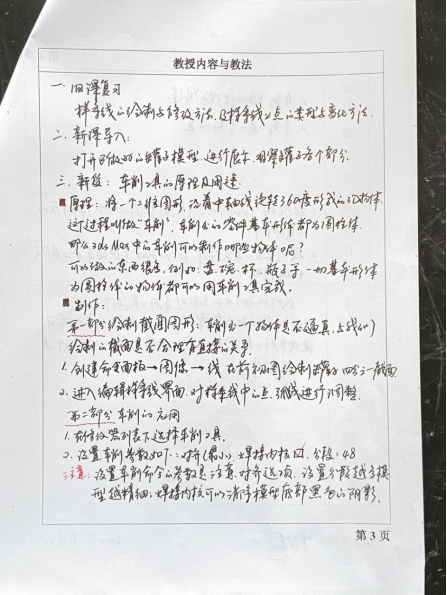 教授内容与教法
一. 旧课复习
样条线的绘制与修改方法及样条线上点的类型与变化方法.
二. 新课导入:
打开已做好的罐子模型 进行展示 观察罐子各个部分.
三. 新授: 车削工具的原理及用途.
原理: 将一个二维图形, 沿着中轴线旋转360度形成的3D物体.
这个过程叫做"车削". 车削出的零件基本形体都为圆柱体.
那么3ds Max中的车削可以制作哪些物体呢?
可以做的东西很多. 例如: 盘. 碗. 杯. 瓶子等. 一切基本形体
为圆柱体的物体都可以用车削工具完成.
制作:
第一部分绘制截面图形: 车削出一个物体是否逼真, 与我们
绘制的截面是否合理有直接的关系.
1. 创建命令面板→图像→线 在前视图绘制罐子四分之一截面
2. 进入编辑样条线界面. 对样条线中的点. 弧线进行调整.
第二部分 车削的应用
1. 在修改器列表下选择车削工具.
2. 设置车削参数如下: 对齐(最小). 焊接内核☑. 分段: 48
注意: 设置车削命令的参数是 注意. 对齐选项. 设置分段越多模
型越精细; 焊接内核可以消除模型底部黑色的阴影.
第 3 页